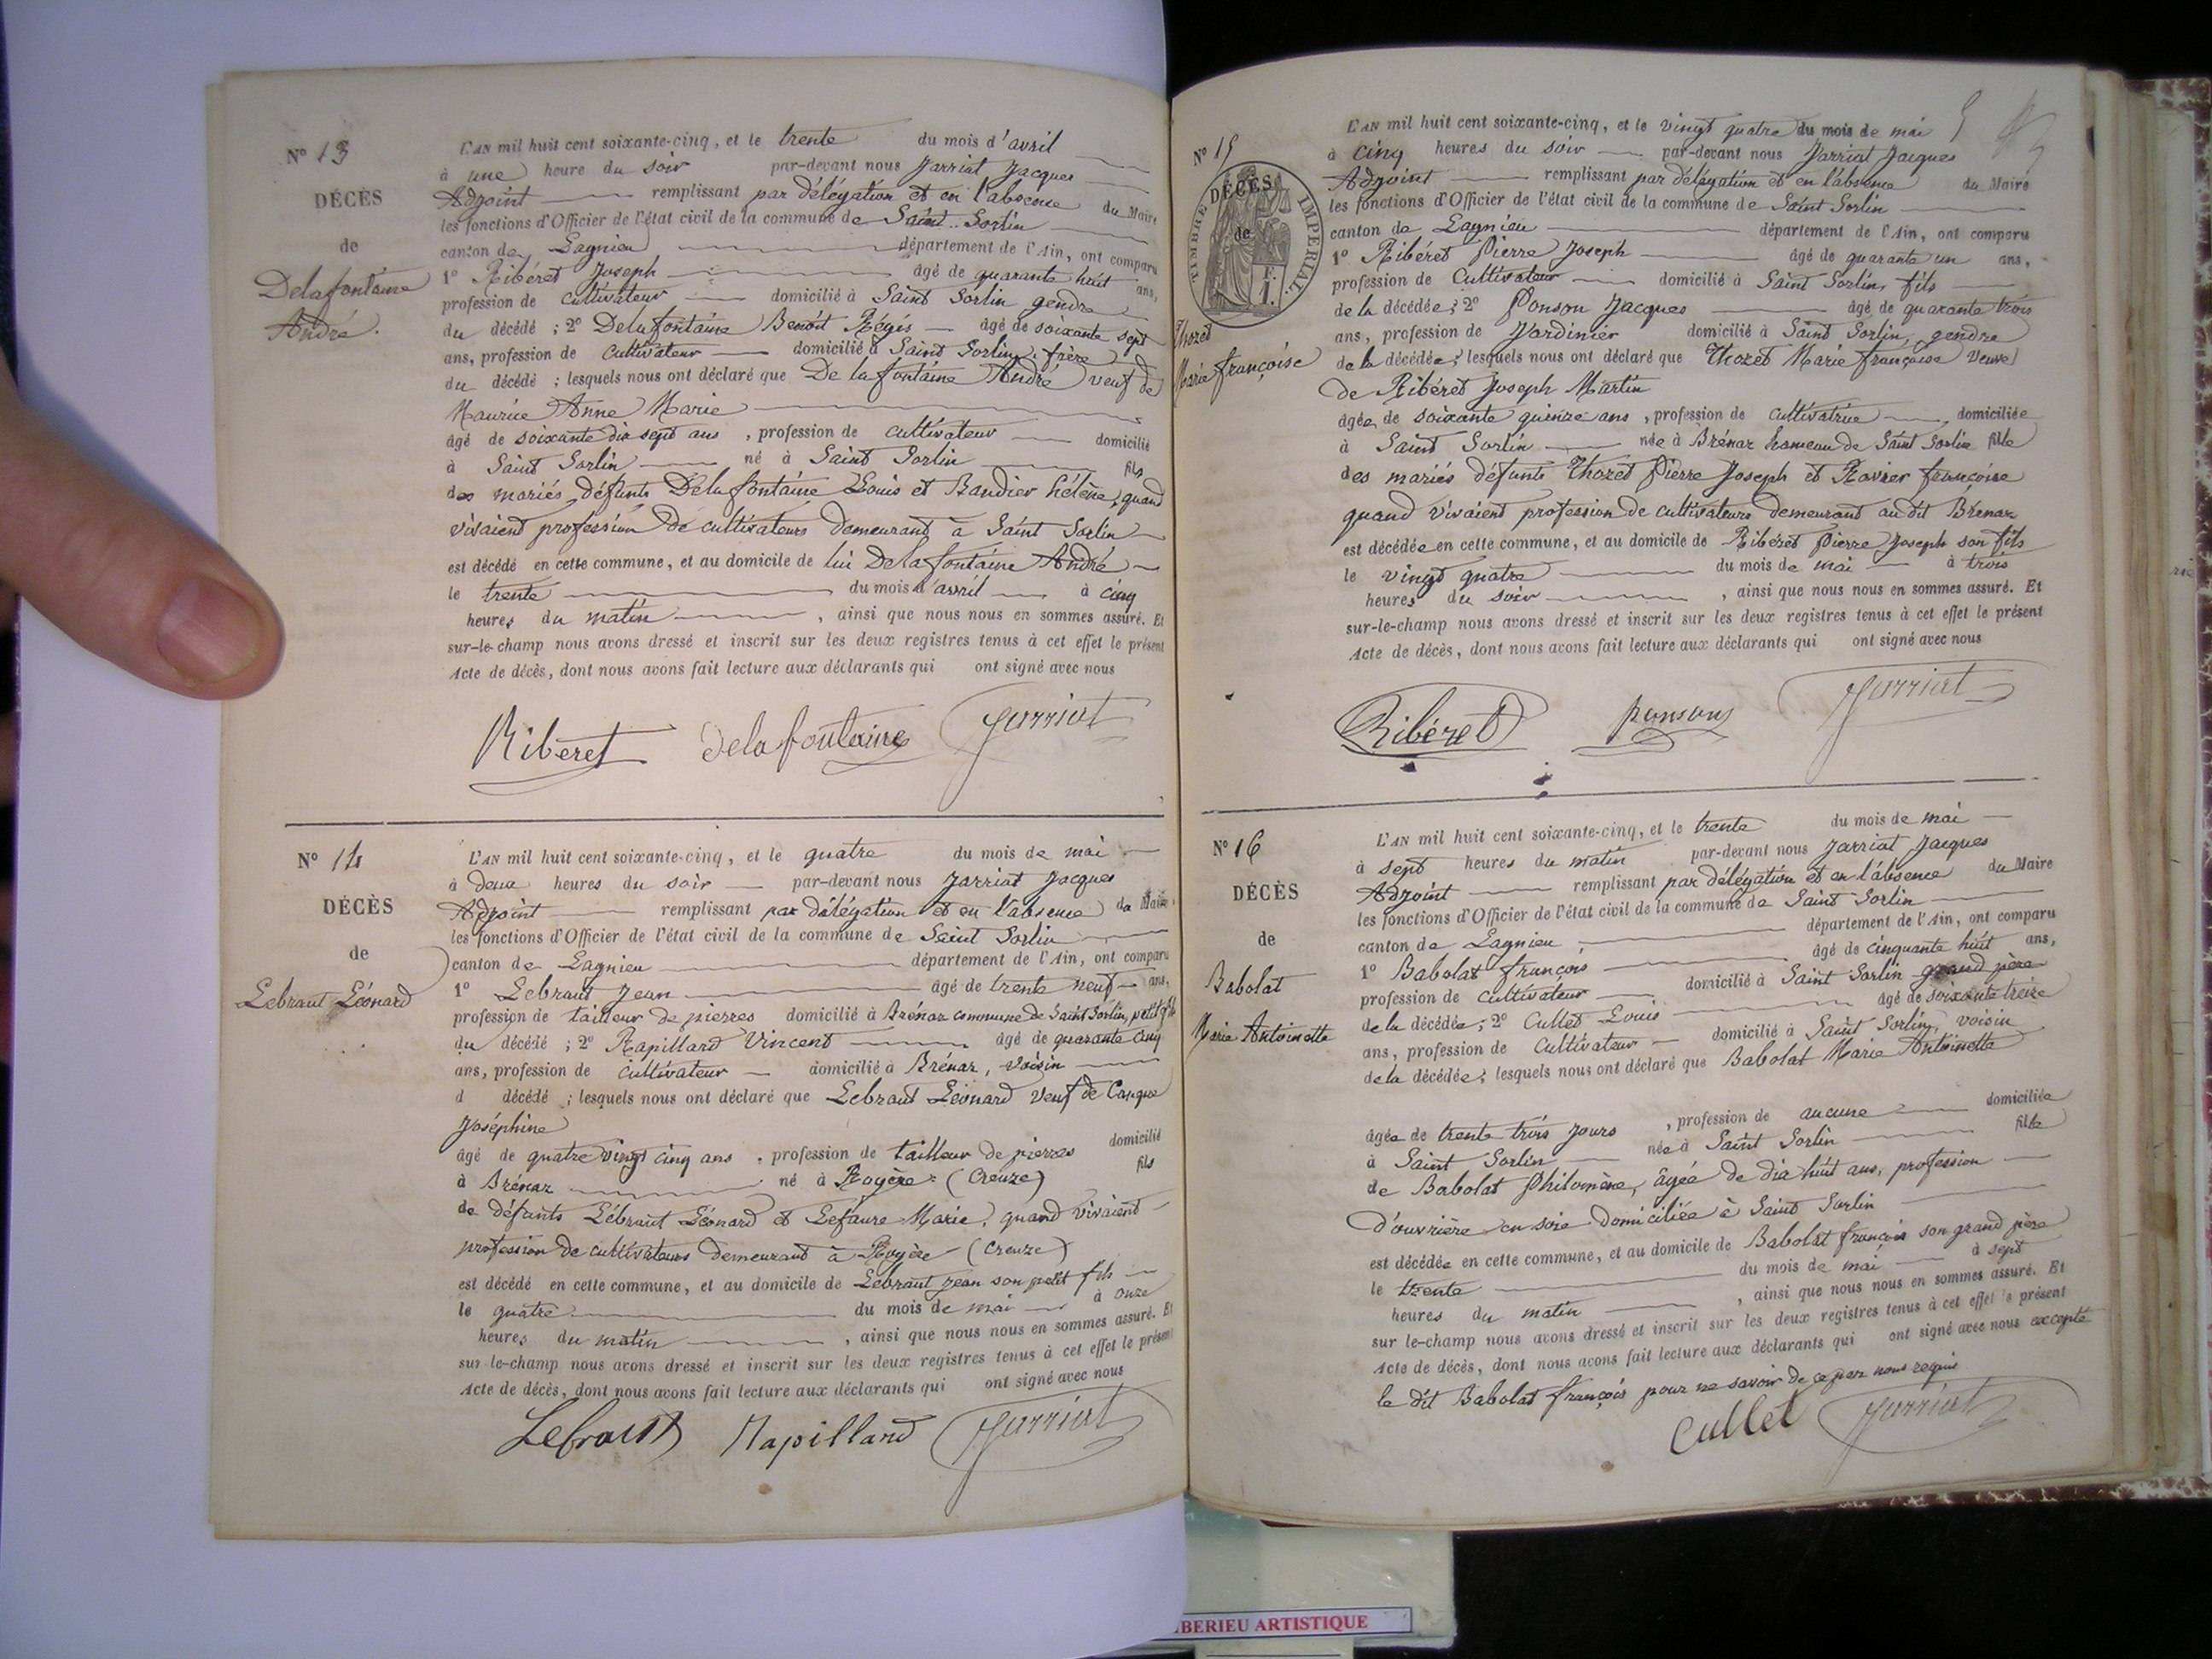 N° 13
DÉCÈS
de
Delafontaine
André.
L'AN mil huit cent soixante-cinq, et le trente du mois d'avril
à une heure du soir par-devant nous Jarriat Jacques
Adjoint remplissant par délégation et en l'absence du Maire
les fonctions d'Officier de l'état civil de la commune de Saint-Sorlin
canton de Lagnieu département de l'Ain, ont comparu
1° Ribéret Joseph âgé de quarante huit ans,
profession de cultivateur domicilié à Saint Sorlin gendre
du décédé ; 2° Delafontaine Benoît Régis âgé de soixante sept
ans, profession de Cultivateur domicilié à Saint Sorlin, frère
du décédé ; lesquels nous ont déclaré que De lafontaine André veuf de
Maurice Anne Marie
âgé de soixante dix sept ans, profession de cultivateur domicilié
à Saint Sorlin né à Saint Sorlin fils
des mariés défunts Delafontaine Louis et Baudier hélène, quand
vivaient profession de cultivateurs demeurant à Saint Sorlin
est décédé en cette commune, et au domicile de lui Delafontaine André
le trente du mois d'avril à cinq
heures du matin, ainsi que nous nous en sommes assuré. Et
sur-le-champ nous avons dressé et inscrit sur les deux registres tenus à cet effet le présent
Acte de décès, dont nous avons fait lecture aux déclarants qui ont signé avec nous
Riberet delafontaine Jarriat
N° 14
DÉCÈS
de
Lebraut Léonard
L'AN mil huit cent soixante-cinq, et le quatre du mois de mai
à deux heures du soir par-devant nous Jarriat Jacques
Adjoint remplissant par délégation et en l'absence du Maire
les fonctions d'Officier de l'état civil de la commune de Saint Sorlin
canton de Lagnieu département de l'Ain, ont comparu
1° Lebraut Jean âgé de trente neuf ans,
profession de tailleur de pierres domicilié à Brénaz commune de Saint Sorlin, petit fils
du décédé ; 2° Rapillard Vincent âgé de quarante cinq
ans, profession de cultivateur domicilié à Brénaz, voisin
d décédé ; lesquels nous ont déclaré que Lebraut Léonard veuf de Canque
Joséphine
âgé de quatre vingt cinq ans, profession de tailleur de pierres domicilié
à Brénaz né à Royère (Creuze) fils
de défunts Lébraut Léonard et Lefaure Marie, quand vivaient
profession de cultivateurs demeurant à Royère (Creuze)
est décédé en cette commune, et au domicile de Lebraut Jean son petit fils
le quatre du mois de mai à onze
heures du matin, ainsi que nous nous en sommes assuré. Et
sur-le-champ nous avons dressé et inscrit sur les deux registres tenus à cet effet le présent
Acte de décès, dont nous avons fait lecture aux déclarants qui ont signé avec nous
Lebraut Rapillard Jarriat
N° 15
TIMBRE IMPERIAL
DÉCÈS
de
1 F.
Thozet
Marie françoise
L'AN mil huit cent soixante-cinq, et le vingt quatre du mois de mai
à cinq heures du soir par-devant nous Jarriat Jacques
Adjoint remplissant par délégation et en l'absence du Maire
les fonctions d'Officier de l'état civil de la commune de Saint Sorlin
canton de Lagnieu département de l'Ain, ont comparu
1° Ribéret Pierre Joseph âgé de quarante un ans,
profession de Cultivateur domicilié à Saint Sorlin, fils
de la décédée ; 2° Ponson Jacques âgé de quarante trois
ans, profession de Jardinier domicilié à Saint Sorlin, gendre
de la décédée ; lesquels nous ont déclaré que Thozet Marie françoise veuve
de Ribéret Joseph Martin
âgée de soixante quinze ans, profession de cultivatrice domiciliée
à Saint Sorlin née à Brénaz hameau de Saint Sorlin fille
des mariés défunts Thozet Pierre Joseph et Ravier françoise
quand vivaient profession de cultivateurs demeurant audit Brénaz
est décédée en cette commune, et au domicile de Ribéret Pierre Joseph son fils
le vingt quatre du mois de mai à trois
heures du soir, ainsi que nous nous en sommes assuré. Et
sur-le-champ nous avons dressé et inscrit sur les deux registres tenus à cet effet le présent
Acte de décès, dont nous avons fait lecture aux déclarants qui ont signé avec nous
Ribéret ponson Jarriat
N° 16
DÉCÈS
de
Babolat
Marie Antoinette
L'AN mil huit cent soixante-cinq, et le trente du mois de mai
à sept heures du matin par-devant nous Jarriat Jacques
Adjoint remplissant par délégation et en l'absence du Maire
les fonctions d'Officier de l'état civil de la commune de Saint Sorlin
canton de Lagnieu département de l'Ain, ont comparu
1° Babolat françois âgé de cinquante huit ans,
profession de cultivateur domicilié à Saint Sorlin grand père
de la décédée ; 2° Cullet Louis âgé de soixante treize
ans, profession de Cultivateur domicilié à Saint Sorlin, voisin
de la décédée ; lesquels nous ont déclaré que Babolat Marie Antoinette
âgée de trente trois jours, profession de aucune domiciliée
à Saint Sorlin née à Saint Sorlin fille
de Babolat Philomène, âgée de dix huit ans, profession
d'ouvrière en soie domiciliée à Saint Sorlin
est décédée en cette commune, et au domicile de Babolat françois son grand père
le trente du mois de mai à sept
heures du matin, ainsi que nous nous en sommes assuré. Et
sur le-champ nous avons dressé et inscrit sur les deux registres tenus à cet effet le présent
Acte de décès, dont nous avons fait lecture aux déclarants qui ont signé avec nous excepté
le dit Babolat françois pour ne savoir de ce par nous requis
Cullet Jarriat
BERIEU ARTISTIQUE